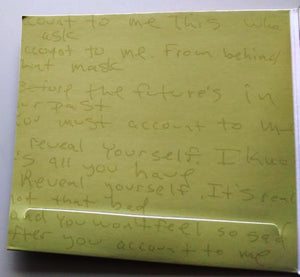 count to me This who
ask
ccount to me. From behind
mask
Before the future's in
ur past
ou must account to me
reveal yourself. I know
's all you have
Reveal yourself. It's real
ot that bad
ad you won't feel so sad
fter you account to me